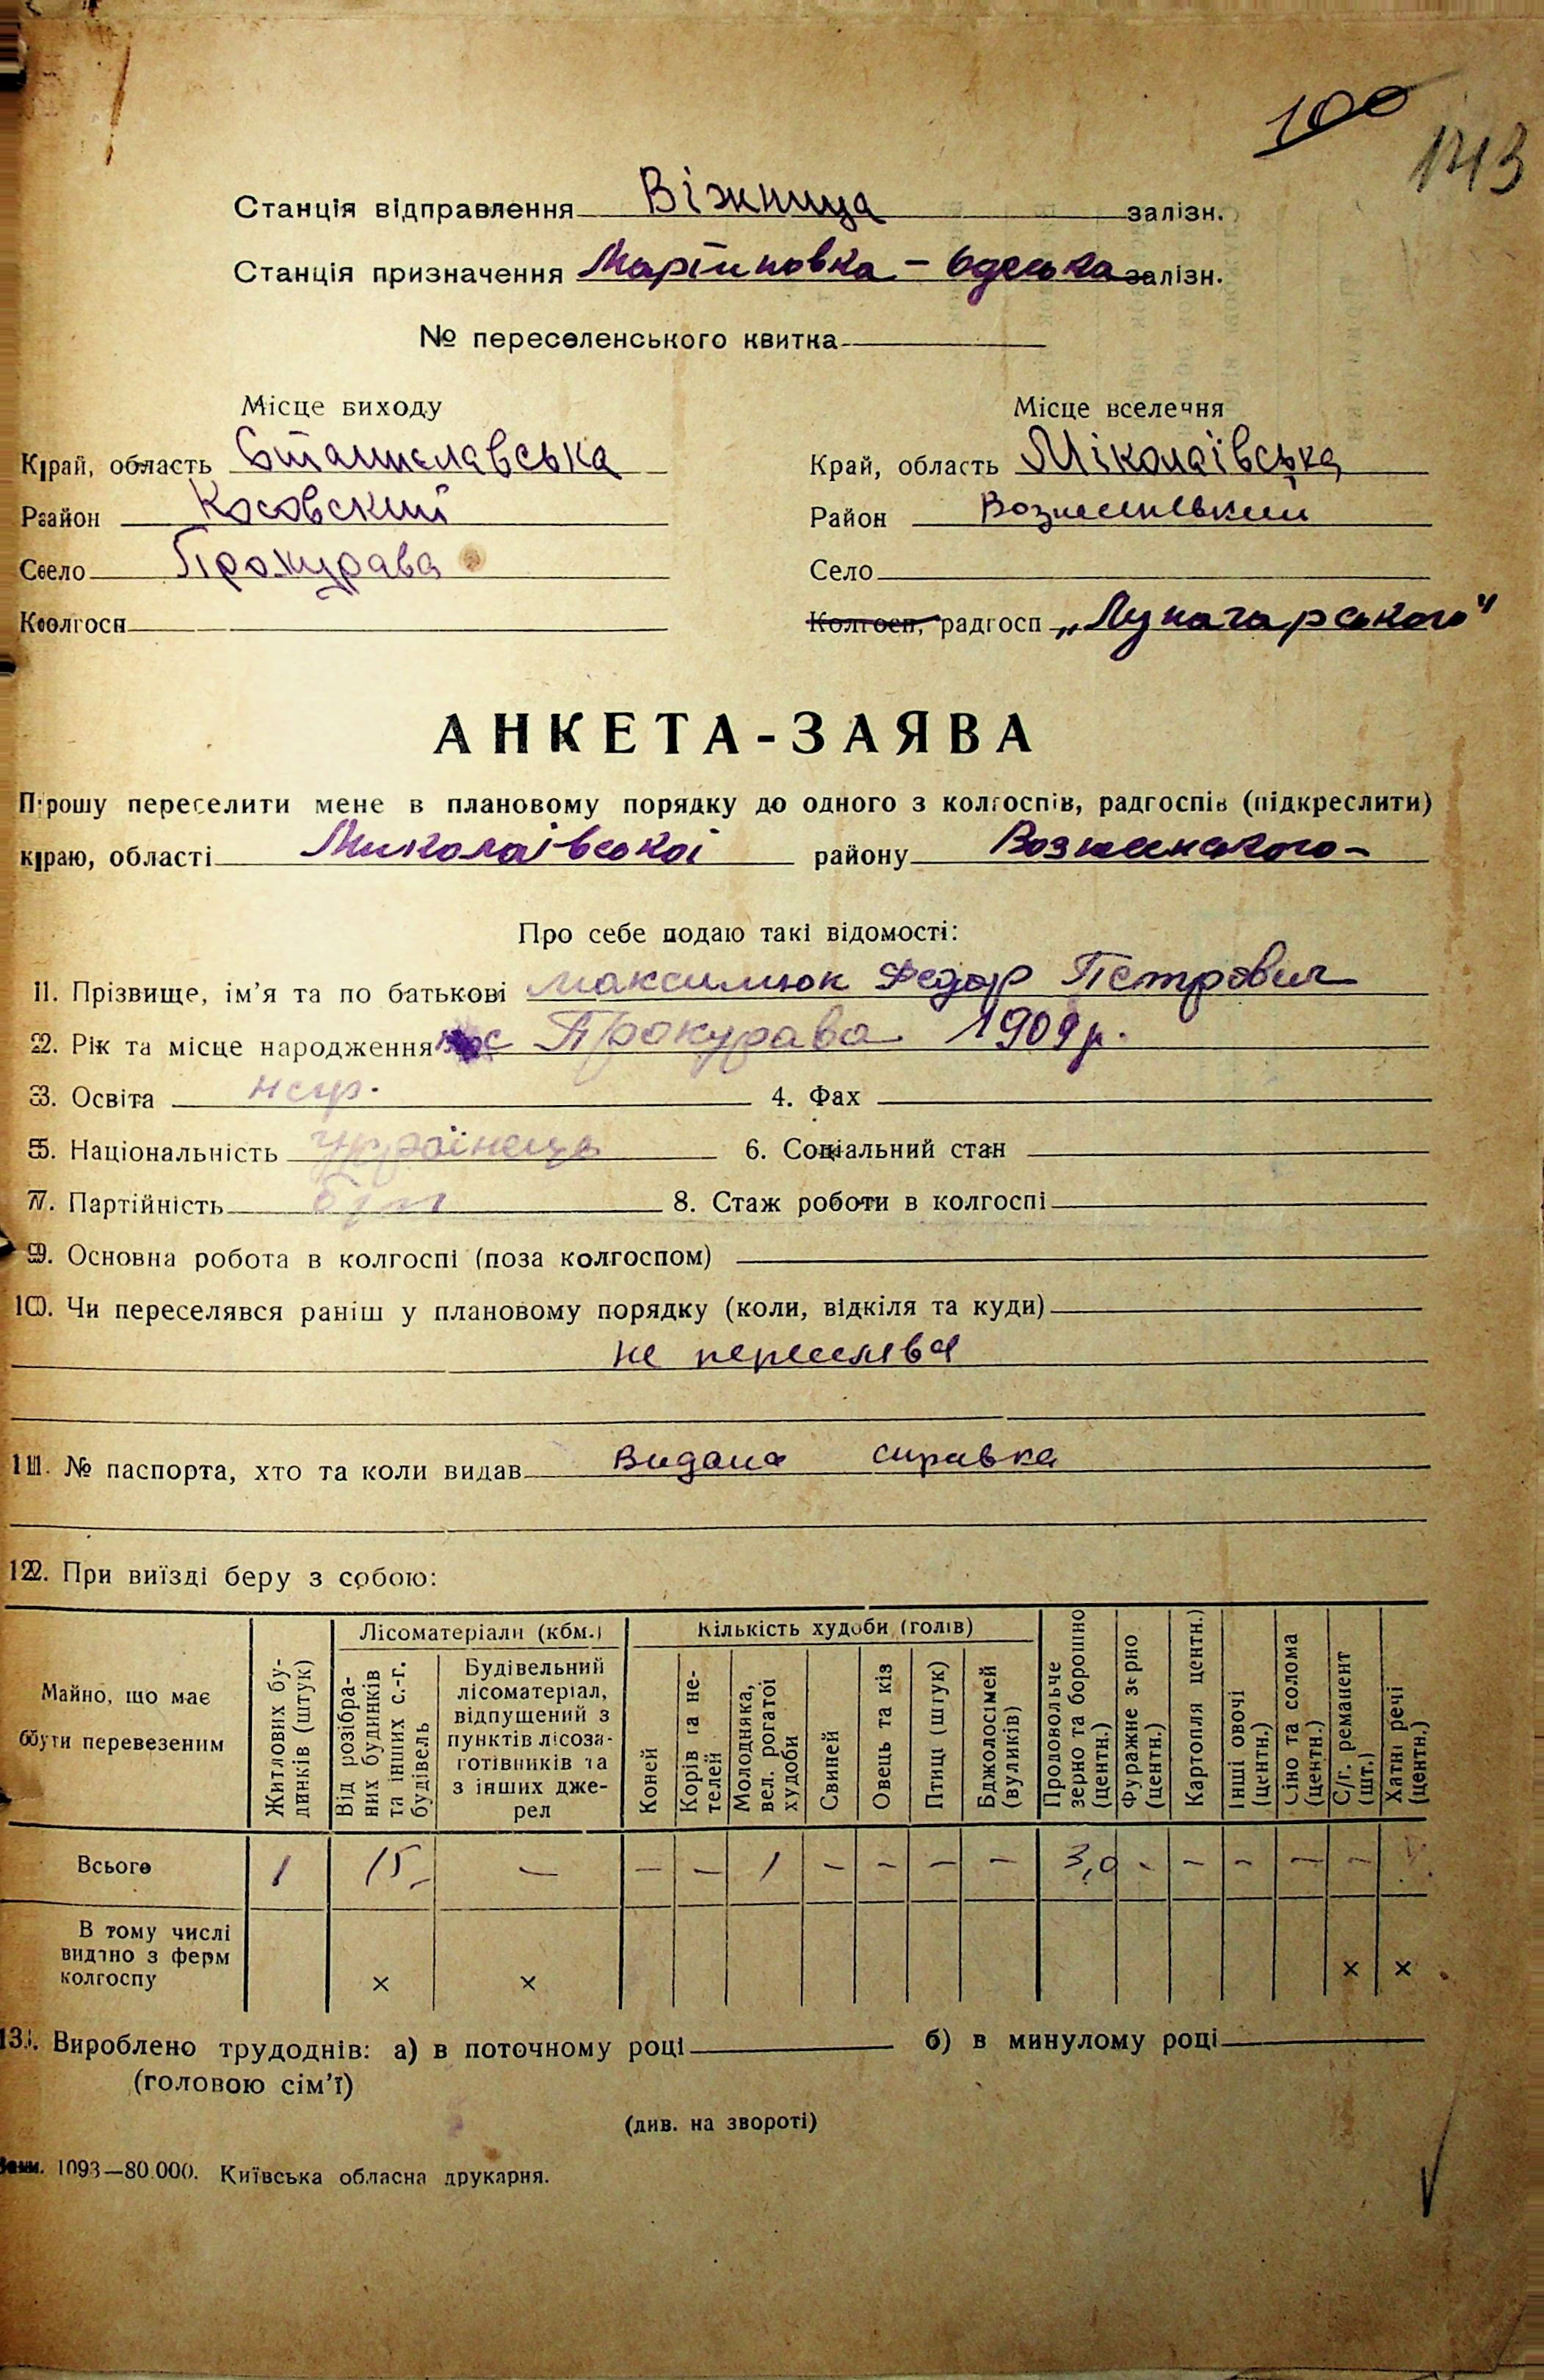 100
143
Станція відправлення Віжница залізн.
Станція призначення Мартиновка - Одеська залізн.
№ переселенського квитка
Місце виходу
Місце вселечня
Край, область Станиславська
Край, область Міколаївська
Район Косовский
Район
Село Прокурава
Село
Колгосп
Колгосп, радгосп „Луначарського"
АНКЕТА-ЗАЯВА
Прошу переселити мене в плановому порядку до одного з колгоспів, радгоспів (підкреслити)
краю, області Миколаівської району
Про себе подаю такі відомості:
1. Прізвище, ім'я та по батькові Максимюк Федор Петрович
2. Рік та місце народження с Прокурава 1909 р.
3. Освіта 4. Фах
5. Національність Українець 6. Соціальний стан
7. Партійність б/п 8. Стаж роботи в колгоспі
9. Основна робота в колгоспі (поза колгоспом)
10. Чи переселявся раніш у плановому порядку (коли, відкіля та куди)
не переселявся
11. № паспорта, хто та коли видав Видана справка
12. При виїзді беру з собою:
Майно, що має бути перевезеним
Житлових будинків (штук)
Лісоматеріали (кбм.)
Від розібраних будинків та інших с.-г. будівель
Будівельний лісоматеріал, відпущений з пунктів лісозаготівників та з інших джерел
Кількість худоби (голів)
Коней
Корів та нетелей
Молодняка, вел. рогатої худоби
Свиней
Овець та кіз
Птиці (штук)
Бджолосімей (вуликів)
Продовольче зерно та борошно (центн.)
Фуражне зерно (центн.)
Картопля центн.)
Інші овочі (центн.)
Сіно та солома (центн.)
С/г. реманент (шт.)
Хатні речі (центн.)
Всього 1 15,- — — — 1 — — — — 3,0 - — — — —
В тому числі видано з ферм колгоспу × × × ×
13. Вироблено трудоднів: а) в поточному році б) в минулому році
(головою сім'ї)
(див. на звороті)
Зам. 1093—80.000. Київська обласна друкарня.